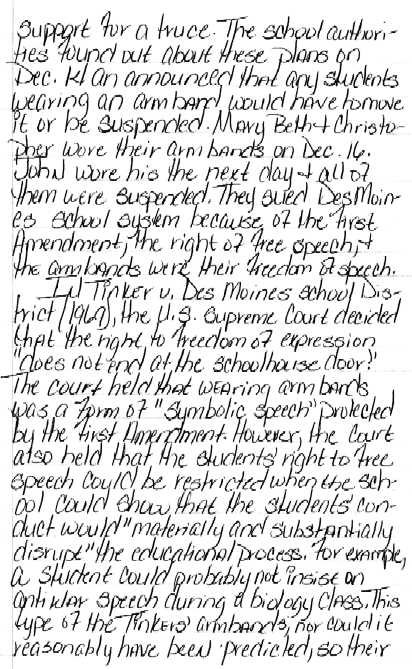 support for a truce. The school authori-
ties found out about these plans on
Dec. 14 an announced that any students
wearing an armband would have to move
it or be suspended. Mary Beth & Christo-
pher wore their armbands on Dec. 16.
John wore his the next day & all of
them were suspended. They sued Des Moin-
es school system because of the first
Amendment, the right of free speech, &
the armbands were their freedom of speech.
In Tinker v. Des Moines School Dis-
trict (1969), the U.S. Supreme Court decided
that the right to freedom of expression
"does not end at the schoolhouse door."
The court held that wearing armbands
was a form of "symbolic speech" protected
by the first Amendment. However, the court
also held that the students' right to free
speech could be restricted when the sch-
ool could show that the students' con-
duct would "materially and substantially
disrupt" the educational process. For example,
a student could probably not insist on
anti war speech during a biology class. This
type of the Tinkers' armbands, nor could it
reasonably have been predicted, so their